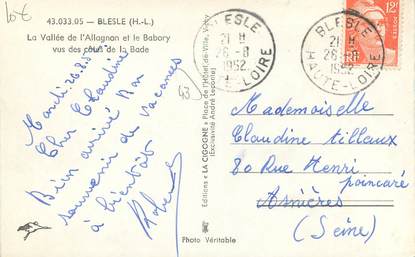 lot
43.033.05 - BLESLE (H.-L.)
La Vallée de l'Allagnan et le Babory
vus des côtes de la Bade
BLESLE
21 H
26-8
1952
HAUTE-LOIRE
BLESLE
21 H
26-8
1952
HAUTE-LOIRE
12F
RF
Mardi. 26.8.52
Cher Claudine
Bien arrivé Bon
souvenir de vacances
à bientôt
Robert
43
Editions "LA CIGOGNE" Place de l'Hôtel-de-Ville, Vichy
(Exclusivité André Leconte)
Mademoiselle
Claudine Aillaux
80 Rue Henri
poincaré
Asnières
(Seine)
Photo Véritable